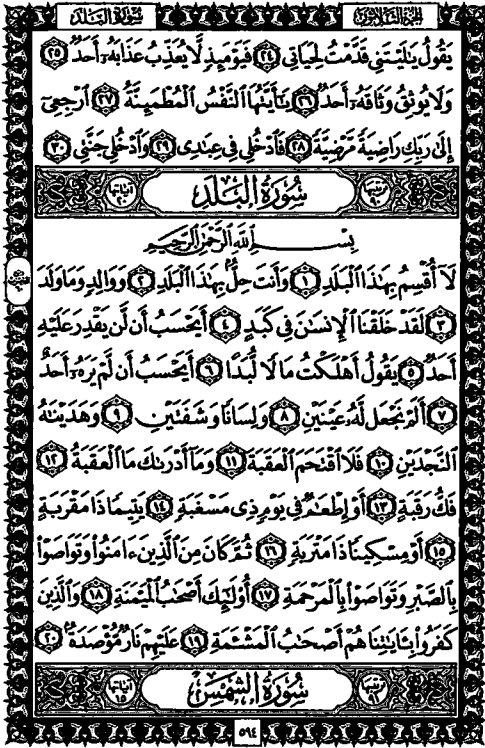 سُورَةُ البَلَدِ
الجُزْءُ الثَّلَاثُونَ
يَقُولُ يَٰلَيْتَنِي قَدَّمْتُ لِحَيَاتِي ٢٤ فَيَوْمَئِذٍ لَّا يُعَذِّبُ عَذَابَهُۥٓ أَحَدٌ ٢٥
وَلَا يُوثِقُ وَثَاقَهُۥٓ أَحَدٌ ٢٦ يَٰٓأَيَّتُهَا ٱلنَّفْسُ ٱلْمُطْمَئِنَّةُ ٢٧ ٱرْجِعِىٓ
إِلَىٰ رَبِّكِ رَاضِيَةً مَّرْضِيَّةً ٢٨ فَٱدْخُلِى فِى عِبَٰدِى ٢٩ وَٱدْخُلِى جَنَّتِى ٣٠
آياتها ٢٠ سُورَةُ البَلَدِ ترتيبها ٩٠
بِسْمِ ٱللَّهِ ٱلرَّحْمَٰنِ ٱلرَّحِيمِ
لَآ أُقْسِمُ بِهَٰذَا ٱلْبَلَدِ ١ وَأَنتَ حِلٌّۢ بِهَٰذَا ٱلْبَلَدِ ٢ وَوَالِدٍ وَمَا وَلَدَ
٣ لَقَدْ خَلَقْنَا ٱلْإِنسَٰنَ فِى كَبَدٍ ٤ أَيَحْسَبُ أَن لَّن يَقْدِرَ عَلَيْهِ
أَحَدٌ ٥ يَقُولُ أَهْلَكْتُ مَالًا لُّبَدًا ٦ أَيَحْسَبُ أَن لَّمْ يَرَهُۥٓ أَحَدٌ
٧ أَلَمْ نَجْعَل لَّهُۥ عَيْنَيْنِ ٨ وَلِسَانًا وَشَفَتَيْنِ ٩ وَهَدَيْنَٰهُ
ٱلنَّجْدَيْنِ ١٠ فَلَا ٱقْتَحَمَ ٱلْعَقَبَةَ ١١ وَمَآ أَدْرَىٰكَ مَا ٱلْعَقَبَةُ ١٢
فَكُّ رَقَبَةٍ ١٣ أَوْ إِطْعَٰمٌ فِى يَوْمٍ ذِى مَسْغَبَةٍ ١٤ يَتِيمًا ذَا مَقْرَبَةٍ
١٥ أَوْ مِسْكِينًا ذَا مَتْرَبَةٍ ١٦ ثُمَّ كَانَ مِنَ ٱلَّذِينَ ءَامَنُوا۟ وَتَوَاصَوْا۟
بِٱلصَّبْرِ وَتَوَاصَوْا۟ بِٱلْمَرْحَمَةِ ١٧ أُو۟لَٰٓئِكَ أَصْحَٰبُ ٱلْمَيْمَنَةِ ١٨ وَٱلَّذِينَ
كَفَرُوا۟ بِـَٔايَٰتِنَا هُمْ أَصْحَٰبُ ٱلْمَشْـَٔمَةِ ١٩ عَلَيْهِمْ نَارٌ مُّؤْصَدَةٌۢ ٢٠
آياتها ١٥ سُورَةُ الشَّمْسِ ترتيبها ٩١
٥٩٤